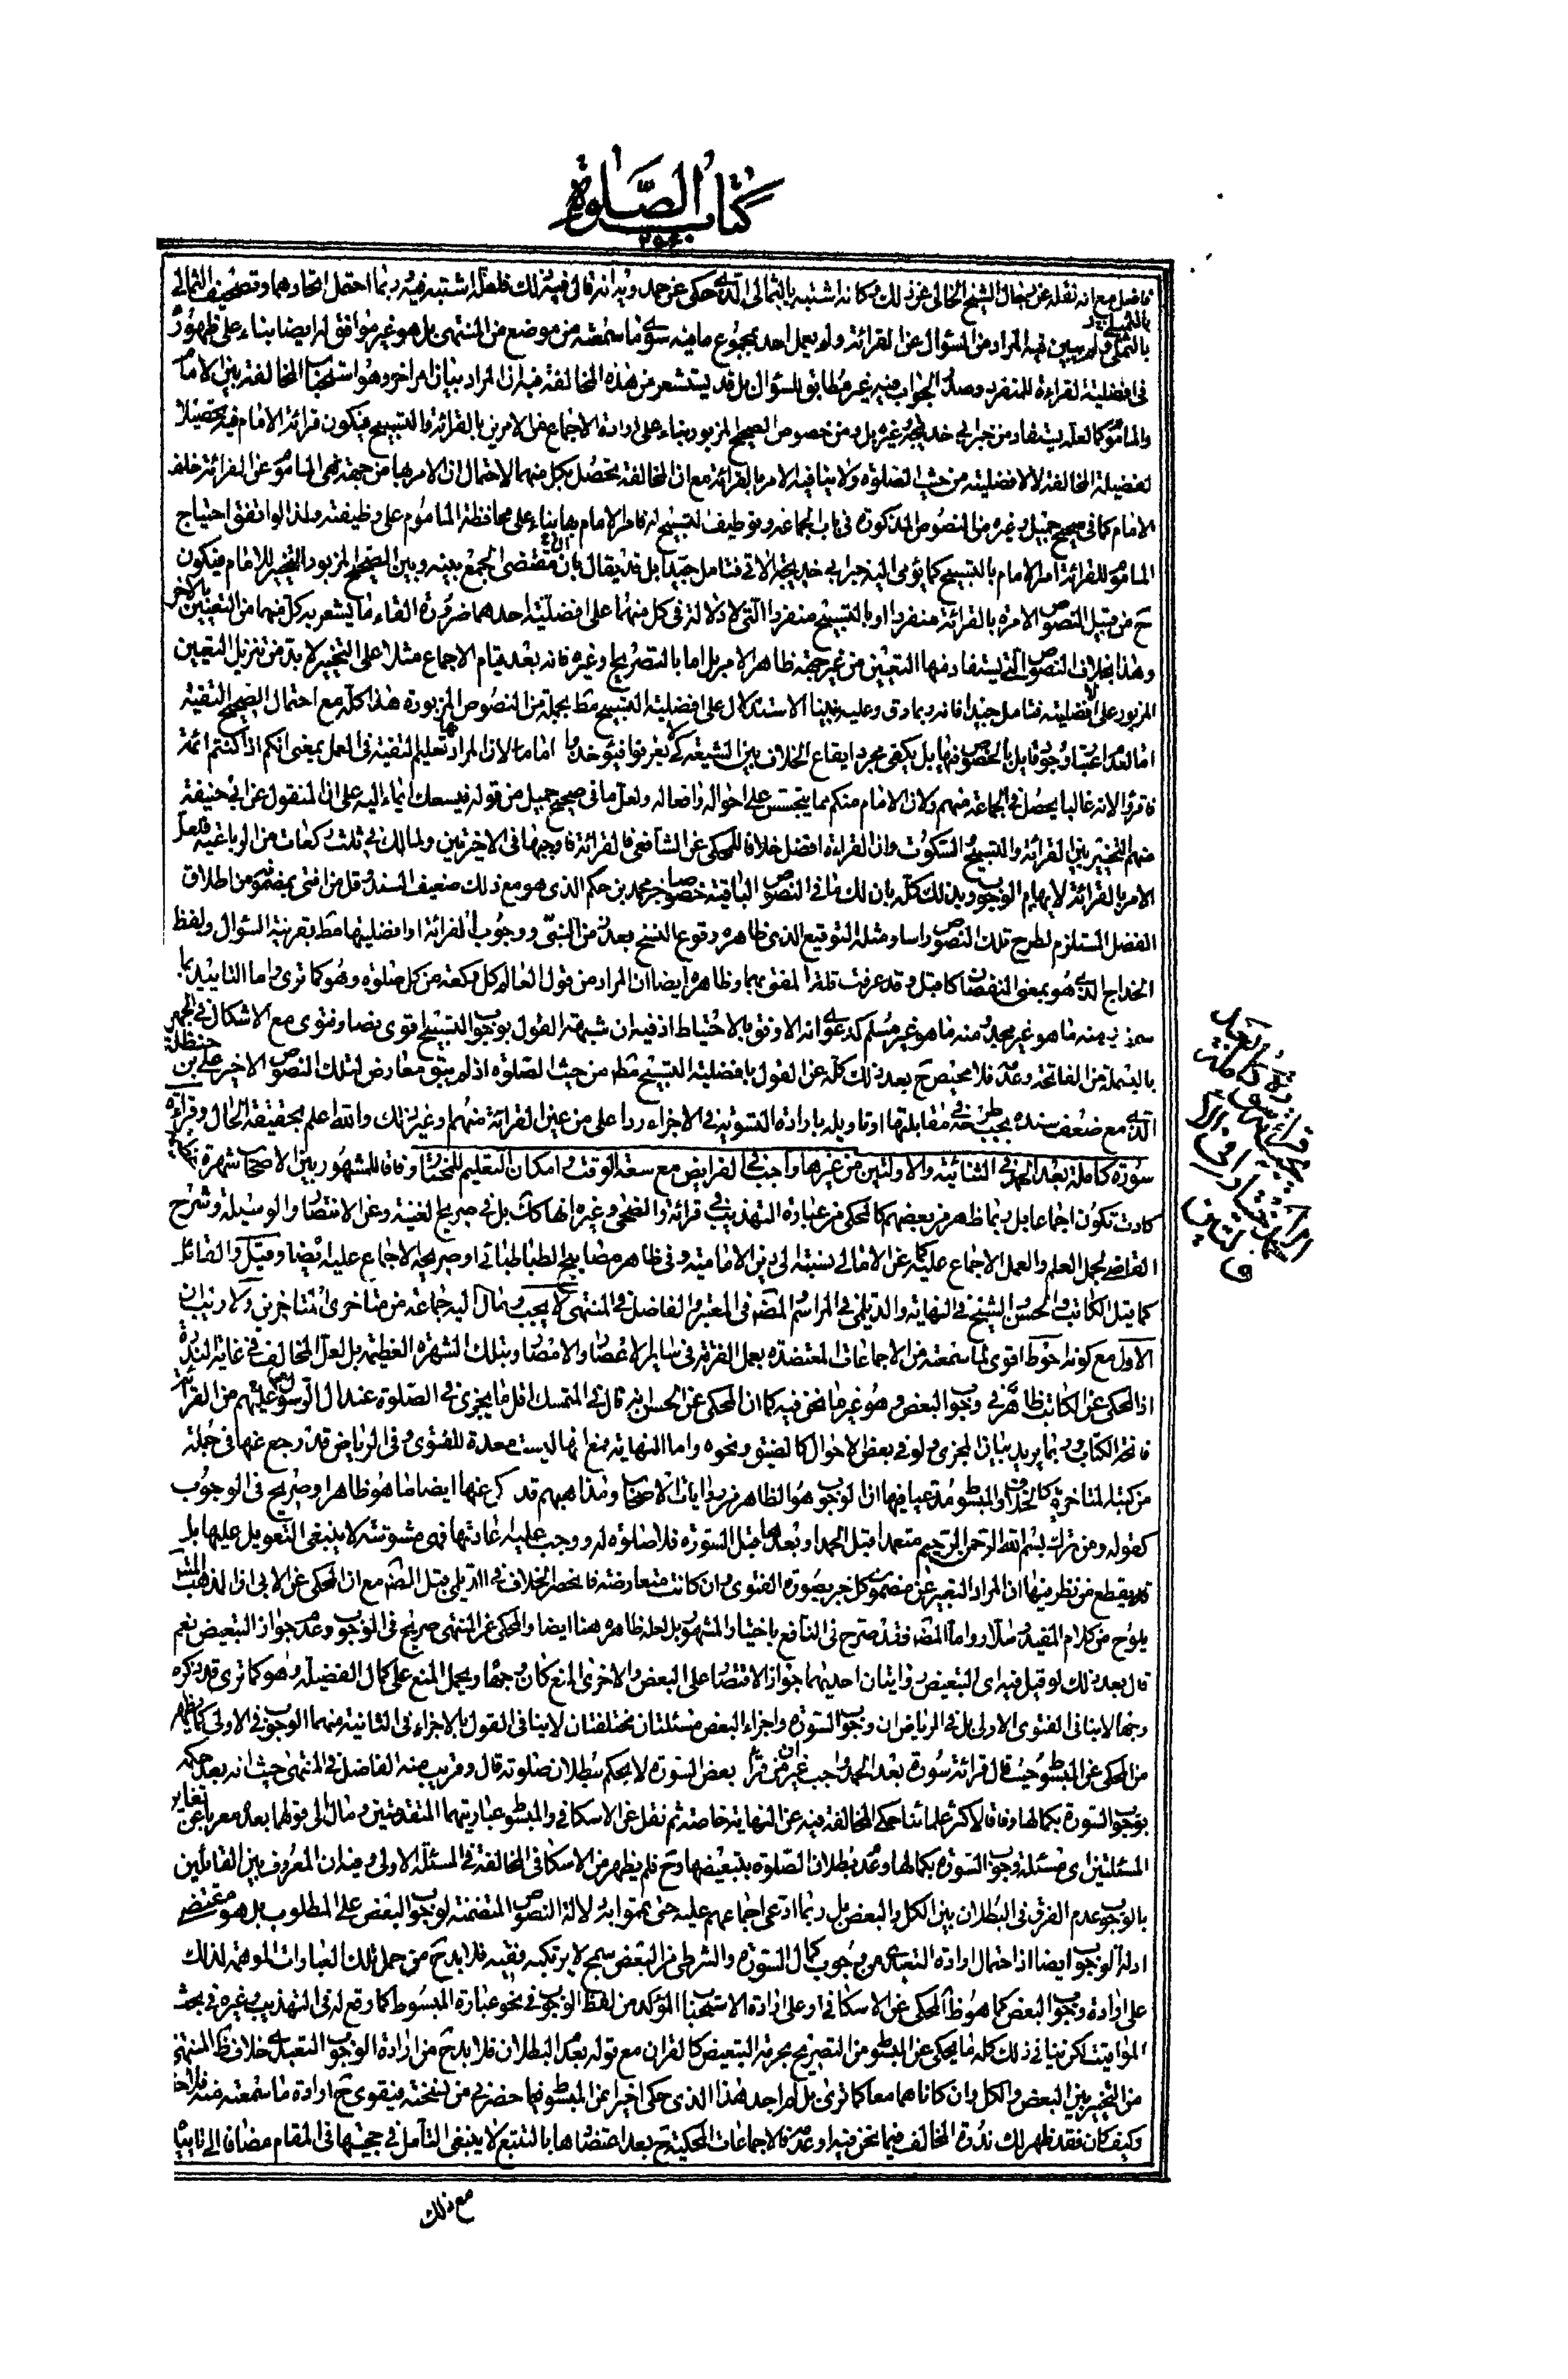 كتاب الصلوة
فاضل مع انه نقله عن رجال الشيخ الخالى عن ذلك وكانه اشتبه بالثمالى الذى حكى عن حمدويه انه قال فيه ذلك فلعله اشتبه فيه وربما احتمل اتحادهما وتصحيف الثمالى
ولم يتبين فيه المراد من السؤال عن القرائة ولم يعمل احد بمجموع ما فيه سوى ما سمعته من موضع من المنتهى بل هو غير موافق له ايضا بناء على ظهوره
فى افضلية القراءة للمنفرد وصدر الجواب فيه غير مطابق للسؤال بل قد يستشعر من هذه المخالفة فيه ان المراد بيان امر اخر وهو استحباب المخالفة بين الامام
والمأموم كما لعله يستفاد من خبر ابى خديجة وغيره بل ومن خصوص الصحيح المزبور بناء على ارادة الاجتماع من الامرين بالقرائة والتسبيح فيكون قرائة الامام فيه تحصيلا
لفضيلة المخالفة لا لافضليته من حيث الصلوة ولا ينافيه الامر بالقرائة مع ان المخالفة تحصل بكل منهما لاحتمال ان الامر بها من جهة نهى المأموم عن القرائة خلف
الامام كما فى صحيح جميل وغيره من النصوص المذكورة فى باب الجماعة وتوظيف التسبيح له فامر الامام بها بناء على محافظة المأموم على وظيفته ولذا لو اتفق احتياج
المأموم للقرائة امر الامام بالتسبيح كما يؤمى اليه خبر ابى خديجة الاتى فتامل جيدا بل قد يقال بان مقتضى الجمع بينه وبين الصحيح المزبور التخيير للامام فيكون
ح من قبيل النصوص الامرة بالقرائة منفردا او بالتسبيح منفردا التى لا دلالة فى كل منهما على افضلية احدهما ضرورة الغاء ما يشعر به كل منهما من التعيين بالاخر
وهذا بخلاف النصوص التى يستفاد منها التعيين من غير جهة ظاهر الامر بل اما بالتصريح او غيره فانه بعد قيام الاجماع مثلا على التخيير لا بد من تنزيل التعيين
المزبور على الافضلية فتامل جيدا فانه ربما دق وعليه بنينا الاستدلال على افضلية التسبيح مط بجملة من النصوص المزبورة هذا كله مع احتمال الصحيح التقية
اما لعدم اعتبار وجود قايل بالخصوص فيها بل يكفى مجرد ايقاع الخلاف بين الشيعة كى لا يعرفوا فيؤخذوا واما لان المراد بها تعليم التقية فى العمل بمعنى انكم اذا كنتم ائمة
فاقرؤا لانه غالبا يحصل فى الجماعة منهم ولان الامام منكم مما يتجسس على احواله وافعاله ولعل ما فى صحيح جميل من قوله فيسعك ايماء اليه على ان المنقول عن ابى حنيفة
منهم التخيير بين القرائة والتسبيح والسكوت وان القراءة افضل خلافا للمحكى عن الشافعى فالقرائة فاوجبها فى الاخيرتين ولمالك فى ثلث ركعات من الرباعية فلعل
الامر بالقرائة لايهام الوجوب وبذلك كله بان لك ما فى النصوص الباقية خصوصا خبر محمد بن حكم الذى هو مع ذلك ضعيف السند وقل من افتى بمضمونه من اطلاق
الفضل المستلزم لطرح تلك النصوص راسا ومثله التوقيع الذى ظاهره وقوع النسخ بعد من النبى ووجوب القرائة او افضليتها مط بقرينة السؤال ولفظ
الخداج الذى هو بمعنى النقصان كما قيل وقد عرفت قلة المفتى بهما وظاهره ايضا ان المراد من قول العالم كل ركعة من كل صلوة وهو كما ترى واما التاييد بما
منه ما هو غير مجد ومنه ما هو غير مسلم كدعوى انه الاوفق بالاحتياط اذ فيه ان شبهة القول بوجوب التسبيح اقوى نصا وفتوى مع الاشكال فى الجهر
بالبسملة من الفاتحة وعدمه فلا محيص ح بعد ذلك كله عن القول بافضلية التسبيح مط من حيث الصلوة اذ لم يبق معارض لتلك النصوص الا خبر على بن حنظلة
الذى مع ضعف سنده يجب طرحه فى مقابلتها او تاويله بارادة التسوية فى الاجزاء ردا على من عين القرائة منهم وغير ذلك والله اعلم بحقيقة الحال وقراءة
سورة كاملة بعد الحمد فى الثنائية والاولتين من غيرها واجب فى الفرايض مع سعة الوقت وامكان التعليم للمختار وفاقا للمشهور بين الاصحاب شهرة
كادت تكون اجماعا بل ربما ظهر من بعضهم كالمحكى من عبارة التهذيب فى قرائة والضحى وغيره انها كك بل فى صريح الغنية وعن الانتصار والوسيلة وشرح
القاضى لجمل العلم والعمل الاجماع عليه كما عن الامالى نسبته الى دين الامامية وفى ظاهر مصابيح الطباطبائى او صريحه الاجماع عليه ايضا وقيل والقائل
كما قيل الكاتب والحسن الشيخ فى النهاية والديلمى فى المراسم المصنف فى المعتبر والفاضل فى المنتهى لا يجب ومال اليه جماعة من متاخرى المتاخرين ولا ريب ان
الاول مع كونه احوط اقوى لما سمعته من الاجماعات المعتضدة بعمل الفرقة فى ساير الاعصار والامصار وبتلك الشهرة العظيمة بل لعل المخالف فى غاية الندرة
اذ المحكى عن الكاتب ظاهر فى وجوب البعض وهو غير ما نحن فيه كما ان المحكى عن الحسن انه قال فى المتمسك اقل ما يجزى فى الصلوة عند ال الرسول عليهم من القرائة
فاتحة الكتاب وربما يريد بيان المجزى ولو فى بعض الاحوال كالضيق ونحوه واما النهاية فمع انها ليست معدة للفتوى وفى الرياض قد رجع عنها فى جملة
من كتبه المتاخرة كالخلاف والمبسوط مدعيا فيها ان الوجوب هو الظاهر من روايات الاصحاب ومذاهبهم قد ذكر عنها ايضا ما هو ظاهر او صريح فى الوجوب
كقوله ومن ترك بسم الله الرحمن الرحيم متعمدا قبل الحمد او بعدها قبل السورة فلا صلوة له ووجب عليه اعادتها فهى مشوشة لا ينبغى التعويل عليها بل
قد يقطع من نظر فيها ان المراد التعبير عن مضمون كل خبر بصورة الفتوى وان كانت متعارضة فانحصر الخلاف فى الديلمى قبل المصنف مع ان المحكى عن الابى ان المذهب
يلوح من كلام المفيد وسلار واما المصنف فقد صرح فى النافع باختيار المشهور بل لعله ظاهره هنا ايضا والمحكى عن المنتهى صريح فى الوجوب وعدم جواز التبعيض نعم
قال بعد ذلك لو قيل فيه اى التبعيض روايتان احديهما جواز الاقتصار على البعض والاخرى المنع كان وجها ويحمل المنع على كمال الفضيلة وهو كما ترى قد ذكره
وجها لا ينافى الفتوى الاولى بل فى الرياض ان وجوب السورة واجزاء البعض مسئلتان مختلفتان لا ينافى القول بالاجزاء فى الثانية منهما الوجوب فى الاولى كما يظهر
من المحكى عن المبسوط حيث قال قرائة سورة بعد الحمد واجب غير ان من قرا بعض السورة لا يحكم ببطلان صلوته قال وقريب منه الفاضل فى المنتهى حيث انه بعد حكمه
بوجوب السورة بكمالها وفاقا لاكثر علمائنا حكى المخالفة فيه عن النهاية خاصة ثم نقل عن الاسكافى والمبسوط عبارتيهما المتقدمتين ومال الى قولهما بعد معربا عن تغاير
المسئلتين اى مسئلة وجوب السورة بكمالها وعدم بطلان الصلوة بتبعيضها وح فلم يظهر من الاسكافى المخالفة فى المسئلة الاولى وفيه ان المعروف بين القائلين
بالوجوب عدم الفرق فى البطلان بين الكل والبعض بل ربما ادعى اجماعهم عليه حتى تمموا به دلالة النصوص المتضمنة لوجوب البعض على المطلوب بل هو مقتضى
ادلة الوجوب ايضا اذ احتمال ارادة التعبدى من وجوب كمال السورة والشرطى من البعض سمج لا يرتكبه فقيه فلا بد ح من حمل تلك العبارات الموهمة لذلك
على ارادة وجوب البعض كما هو ظ المحكى عن الاسكافى او على ارادة الاستحباب المؤكد من لفظ الوجوب فى نحو عبارة المبسوط كما وقع له فى التهذيب وغيره فى بحث
المواقيت لكن ينافى ذلك كله ما يحكى عن المبسوط من التصريح بحرمة التبعيض كالقران مع قوله بعدم البطلان فلا بد ح من ارادة الوجوب التعبدى خلاف ظ المنتهى
من التخيير بين البعض والكل وان كانا هما معا كما ترى بل لم اجد هذا الذى حكى اخيرا عن المبسوط فيما حضرنى من نسخته فيقوى ح ارادة ما سمعته منه
وكيف كان فقد ظهر لك ندرة المخالف فيما نحن فيه او عدمه فالاجماعات المحكية ح بعد اعتضادها بالتتبع لا ينبغى التامل فى حجيتها فى المقام مضافا الى تاييدها
مع ذلك